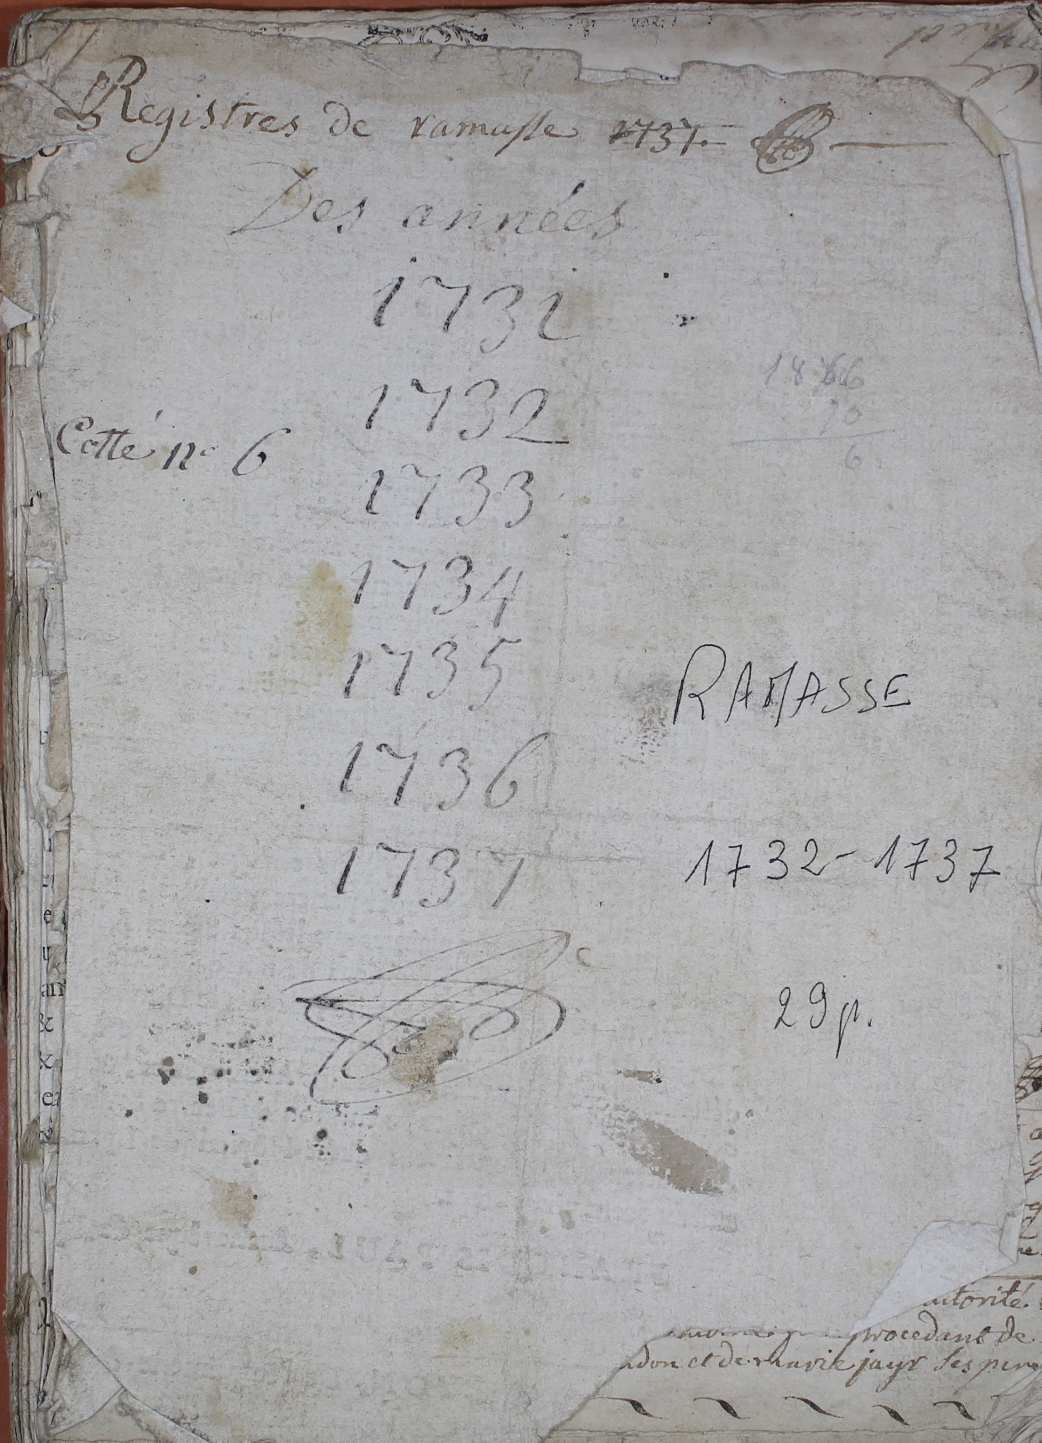 Registres de ramasse 1737.
Des années
1731
1732
Cotté no 6
1733
1734
1735
1736
1737
1866
70
6
RAMASSE
1732-1737
29p.
autorité
procedant de
et de marie jayr ses